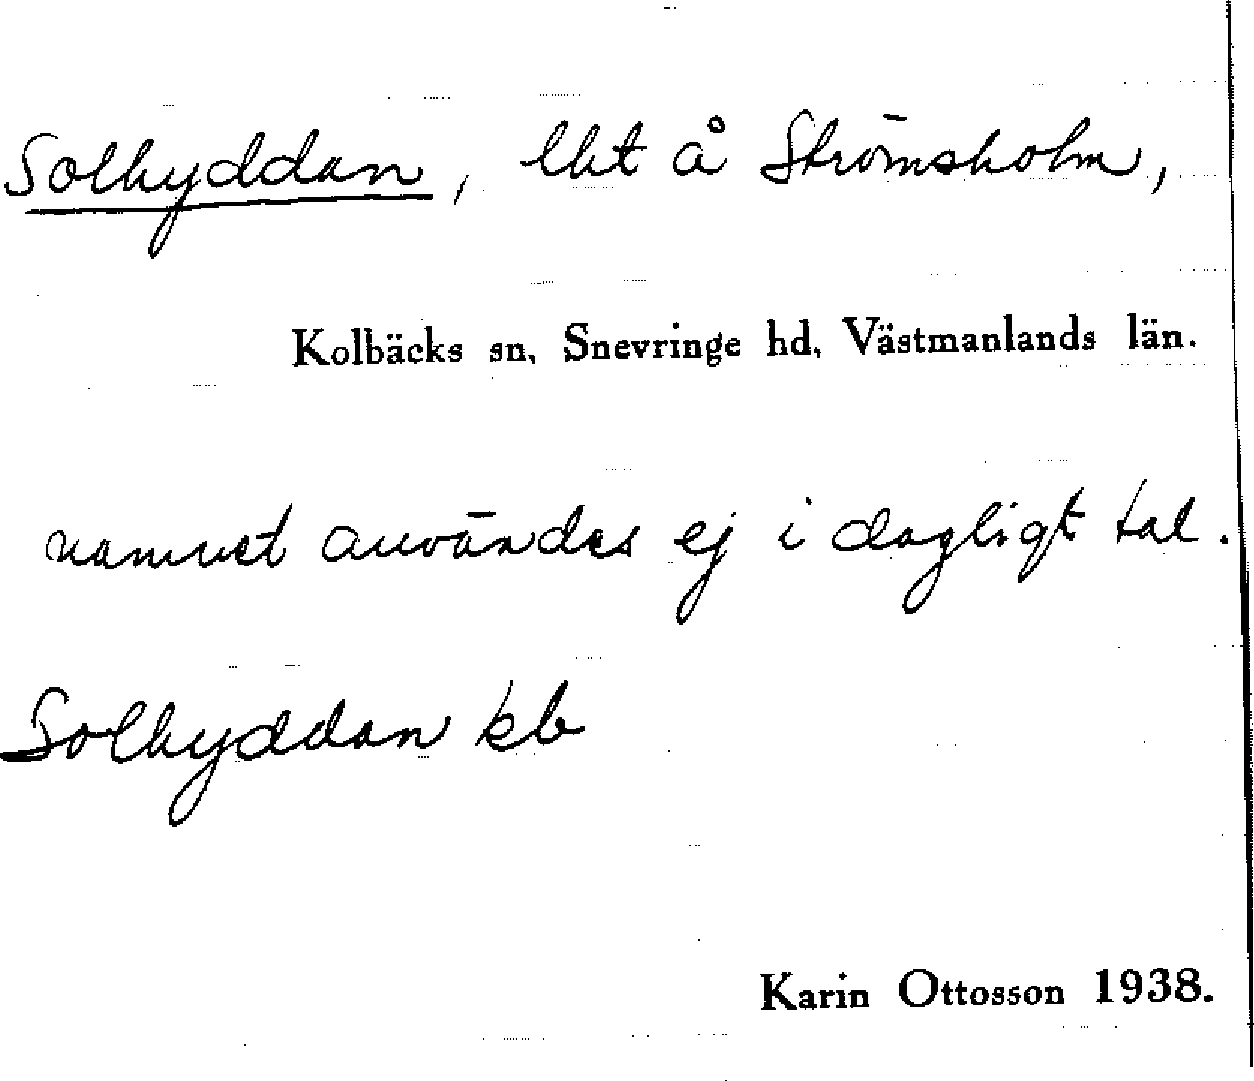 Solhyddan, lht å Strömsholm,
Kolbäcks sn, Snevringe hd, Västmanlands län.
namnet användes ej i dagligt tal.
Solhyddan kb
Karin Ottosson 1938.